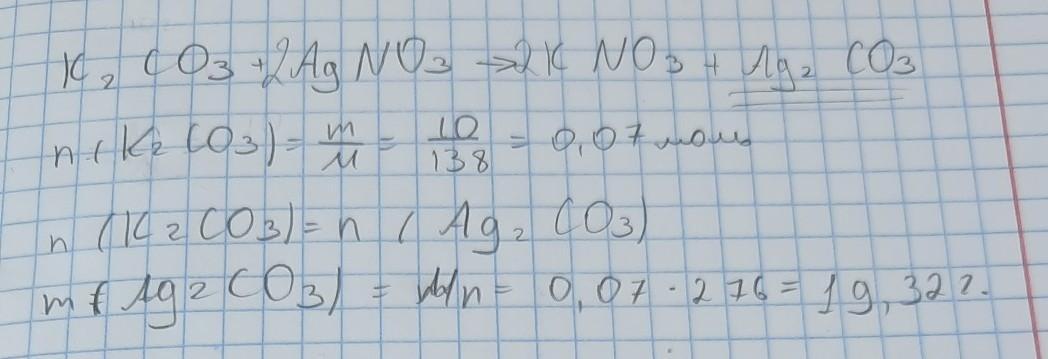 K₂CO₃ + 2AgNO₃ → 2KNO₃ + Ag₂CO₃
n(K₂CO₃) = m/M = 10/138 = 0,07 моль
n(K₂CO₃) = n(Ag₂CO₃)
m(Ag₂CO₃) = n = 0,07 · 276 = 19,32 г.